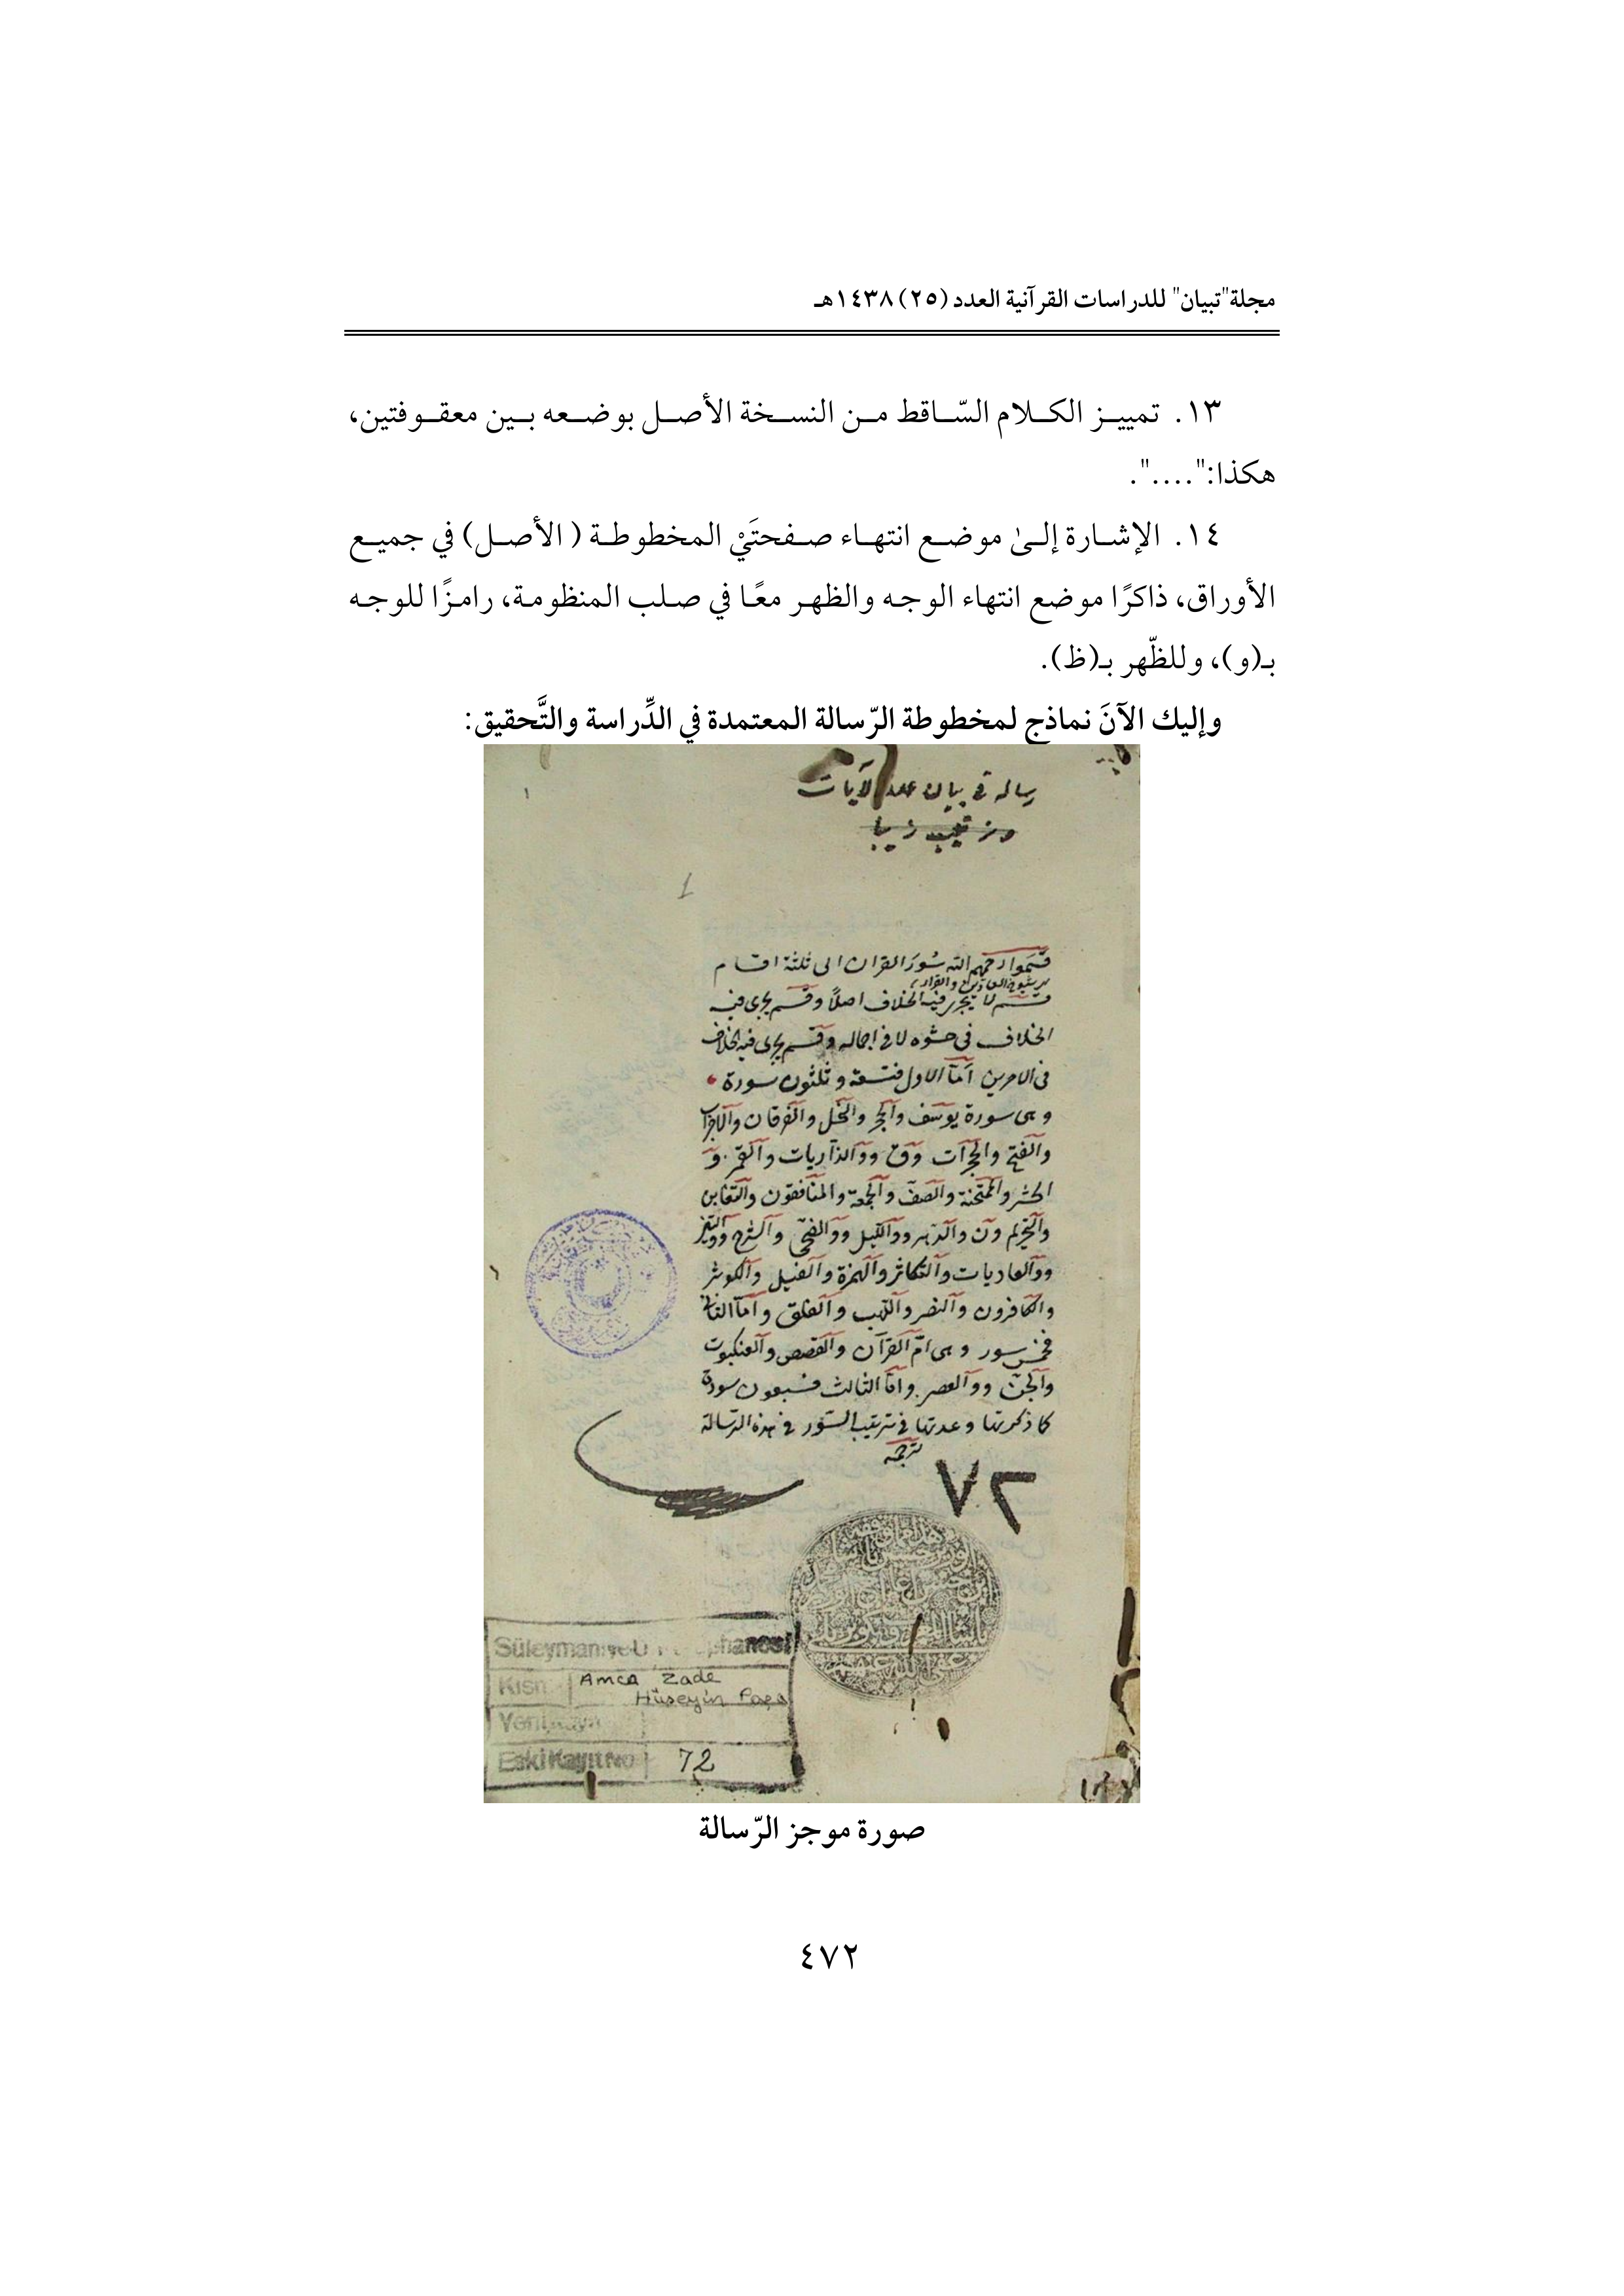 مجلة"تبيان" للدراسات القرآنية العدد (٢٥) ١٤٣٨هـ
١٣. تمييز الكلام السّاقط من النسخة الأصل بوضعه بين معقوفتين،
هكذا:"....".
١٤. الإشارة إلىٰ موضع انتهاء صفحتَيْ المخطوطة ( الأصل) في جميع
الأوراق، ذاكرًا موضع انتهاء الوجه والظهر معًا في صلب المنظومة، رامزًا للوجه
بـ(و)، وللظّهر بـ(ظ).
وإليك الآنَ نماذج لمخطوطة الرّسالة المعتمدة في الدِّراسة والتَّحقيق:
رساله في بيان عدد الآيات
1
قسموا رحمهم الله سُوَر القران الى ثلثة اقسام
قسم لا يجرى فيه الخلاف اصلًا وقسم يجرى فيه
الخلاف فى حشوه لا فى اجماله وقسم يجرى فيه الخلاف
فى الامرين امّا الاول فتسعة وثلثون سورة
وهى سورة يوسف والحجر والنحل والفرقان والاحزاب
والفتح والحجرات وق ووالذاريات والقمر و
الحشر والممتحنة والصف والجمعة والمنافقون والتغابن
والتحريم ون والدهر ووالليل ووالضحى والشرح ووالتين
ووالعاديات والتكاثر والهمزة والفيل والكوثر
والكافرون والنصر واللهب والفلق وامّا الثانى
فخمس سور وهى امّ القرآن والقصص والعنكبوت
والجن ووالعصر وامّا الثالث فسبعون سورة
كما ذكرتها وعدتها فى ترتيب السّور فى هذه الرّسالة
٧٢
Süleymaniye
Amca Zade
Hüseyin Paşa
Eski Kayıt No 72
صورة موجز الرّسالة
٤٧٢